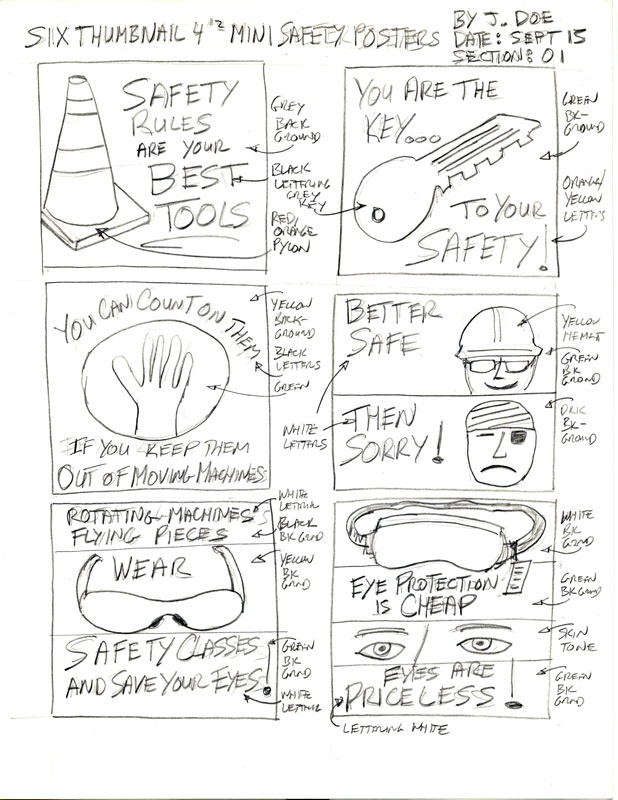 SIX THUMBNAIL 4"² MINI SAFETY POSTERS
BY J. DOE
DATE: SEPT 15
SECTION: 01
SAFETY
RULES
ARE YOUR
BEST
TOOLS
GREY
BACK
GROUND
BLACK
LETTERING
GREY
KEY
RED/
ORANGE
PYLON
YOU ARE THE
KEY...
TO YOUR
SAFETY!
GREEN
BK-
GROUND
ORANGE/
YELLOW
LETTERS
YOU CAN COUNT ON THEM
IF YOU KEEP THEM
OUT OF MOVING MACHINES
YELLOW
BACK-
GROUND
BLACK
LETTERS
GREEN
WHITE
LETTERS
BETTER
SAFE
THEN
SORRY!
YELLOW
HELMET
GREEN
BK
GROND
DRK
BK-
GROUND
ROTATING MACHINES
FLYING PIECES
WEAR
SAFETY GLASSES
AND SAVE YOUR EYES!
WHITE
LETTERING
BLACK
BK GRND
YELLOW
BK
GRND
GREEN
BK
GRND
WHITE
LETTERING
EYE PROTECTION
IS CHEAP
EYES ARE
PRICELESS!
WHITE
BK
GRND
GREEN
BK GRND
SKIN
TONE
GREEN
BK
GRND
LETTERING WHITE